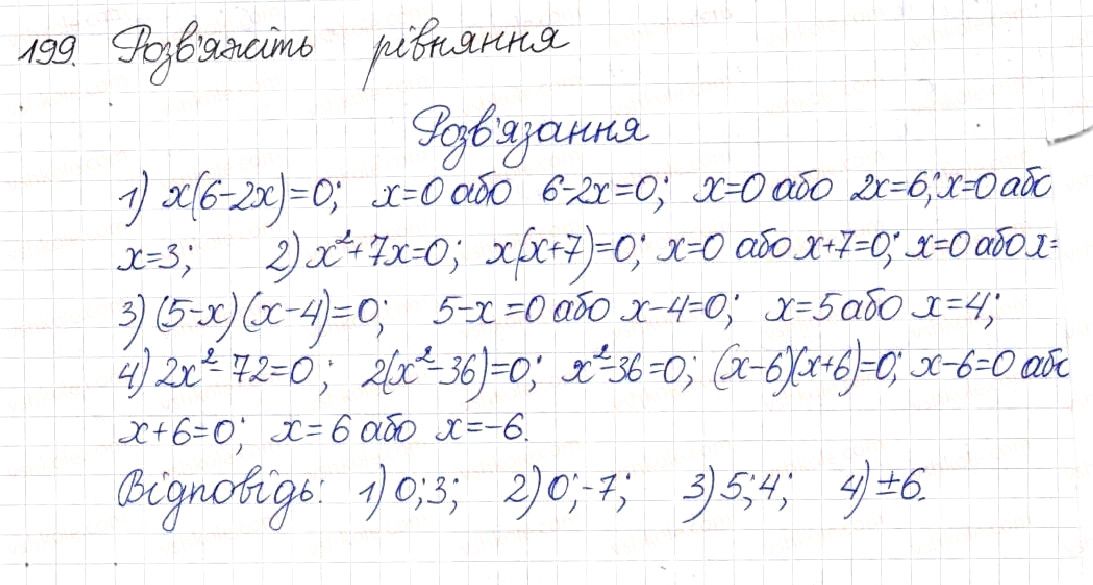 199. Розв'яжіть рівняння
Розв'язання
1) x(6-2x)=0; x=0 або 6-2x=0; x=0 або 2x=6; x=0 або
x=3; 2) x²+7x=0; x(x+7)=0; x=0 або x+7=0; x=0 або x=
3) (5-x)(x-4)=0; 5-x=0 або x-4=0; x=5 або x=4;
4) 2x²-72=0; 2(x²-36)=0; x²-36=0; (x-6)(x+6)=0; x-6=0 або
x+6=0; x=6 або x=-6.
Відповідь: 1) 0; 3; 2) 0; -7; 3) 5; 4; 4) ±6.